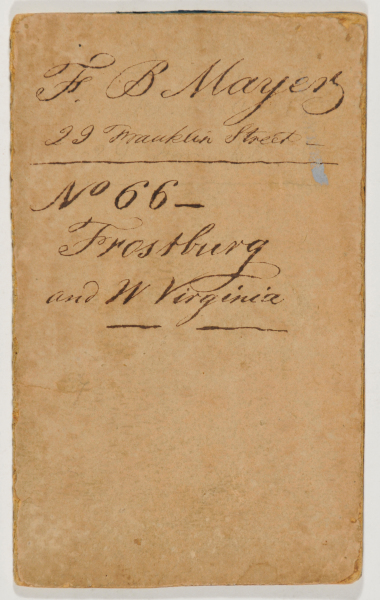 F. B Mayer
29 Franklin Street –
No 66 –
Frostburg
and W Virginia